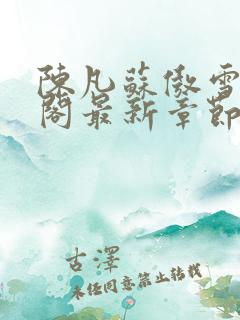 陳凡蘇傲雪
閣最新章節
古澤
未经同意禁止转载